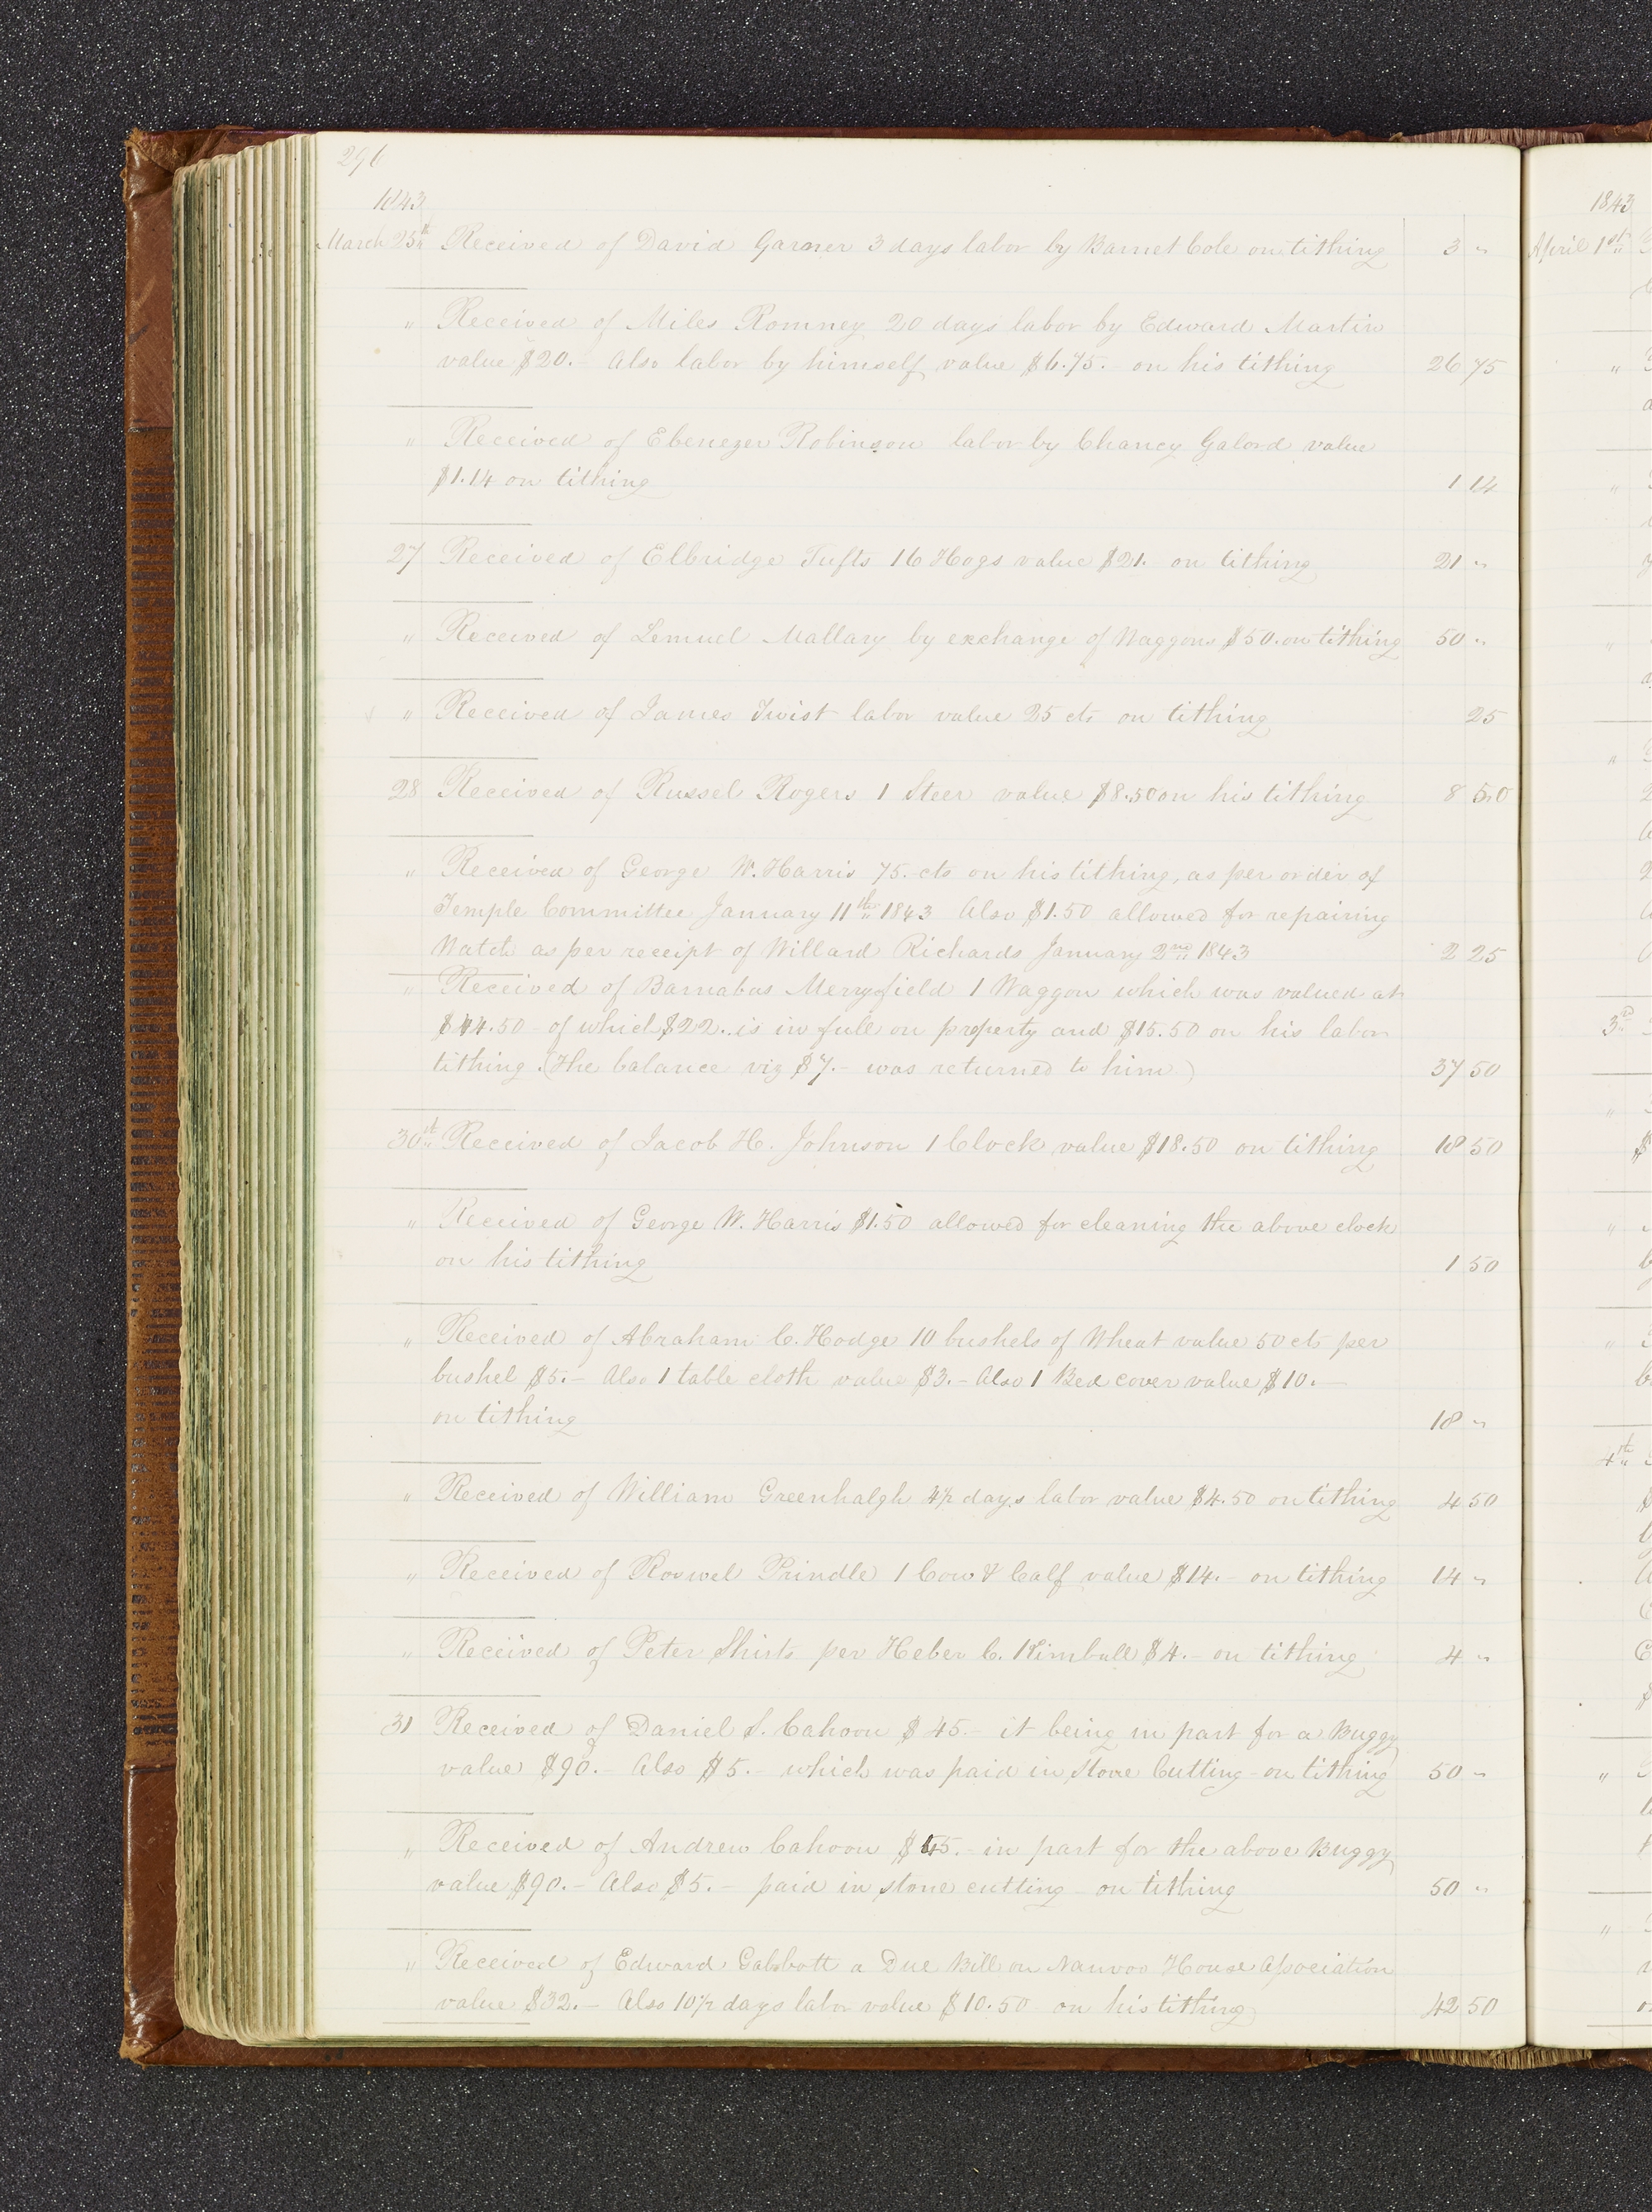 296
1843
March 25th Received of David Garner 3 days labor by Barnet Cole on tithing 3 "
" Received of Miles Romney 20 days labor by Edward Martin
value $20.- Also labor by himself value $6.75.- on his tithing 26 75
" Received of Ebenezer Robinson labor by Chancy Galord value
$1.14 on tithing 1 14
27 Received of Elbridge Tufts 16 Hogs value $21.- on tithing 21 "
" Received of Lemuel Mallary by exchange of Waggons $50. on tithing 50 "
" Received of James Twist labor value 25 cts on tithing 25
28 Received of Russel Rogers 1 Steer value $8.50 on his tithing 8 50
" Received of George W. Harris 75. cts on his tithing, as per order of
Temple Committee January 11th 1843 Also $1.50 allowed for repairing
Watch as per receipt of Willard Richards January 2nd 1843 2 25
" Received of Barnabas Merryfield 1 Waggon which was valued at
$44.50 - of which $22.. is in full on property and $15.50 on his labor
tithing. (The balance viz $7.- was returned to him.) 37 50
30th Received of Jacob H. Johnson 1 Clock value $18.50 on tithing 18 50
" Received of George W. Harris $1.50 allowed for cleaning the above clock
on his tithing 1 50
" Received of Abraham C. Hodge 10 bushels of Wheat value 50 cts per
bushel $5.- Also 1 table cloth value $3.- Also 1 Bed cover value $10.-
on tithing 18 "
" Received of William Greenhalgh 4½ days labor value $4.50 on tithing 4 50
" Received of Roswel Prindle 1 Cow & Calf value $14.- on tithing 14 "
" Received of Peter Shirts per Heber C. Kimball $4.- on tithing 4 "
31 Received of Daniel S. Cahoon $45.- it being in part for a Buggy
value $90.- Also $5.- which was paid in Stone Cutting - on tithing 50 "
" Received of Andrew Cahoon $45.- in part for the above Buggy
value $90.- Also $5.- paid in stone cutting - on tithing 50 "
" Received of Edward Gabbott a Due Bill on Nauvoo House Association
value $32.- Also 10½ days labor value $10.50 on his tithing 42 50
1843
April 1st
"
"
"
"
3rd
"
"
"
4th
"
"